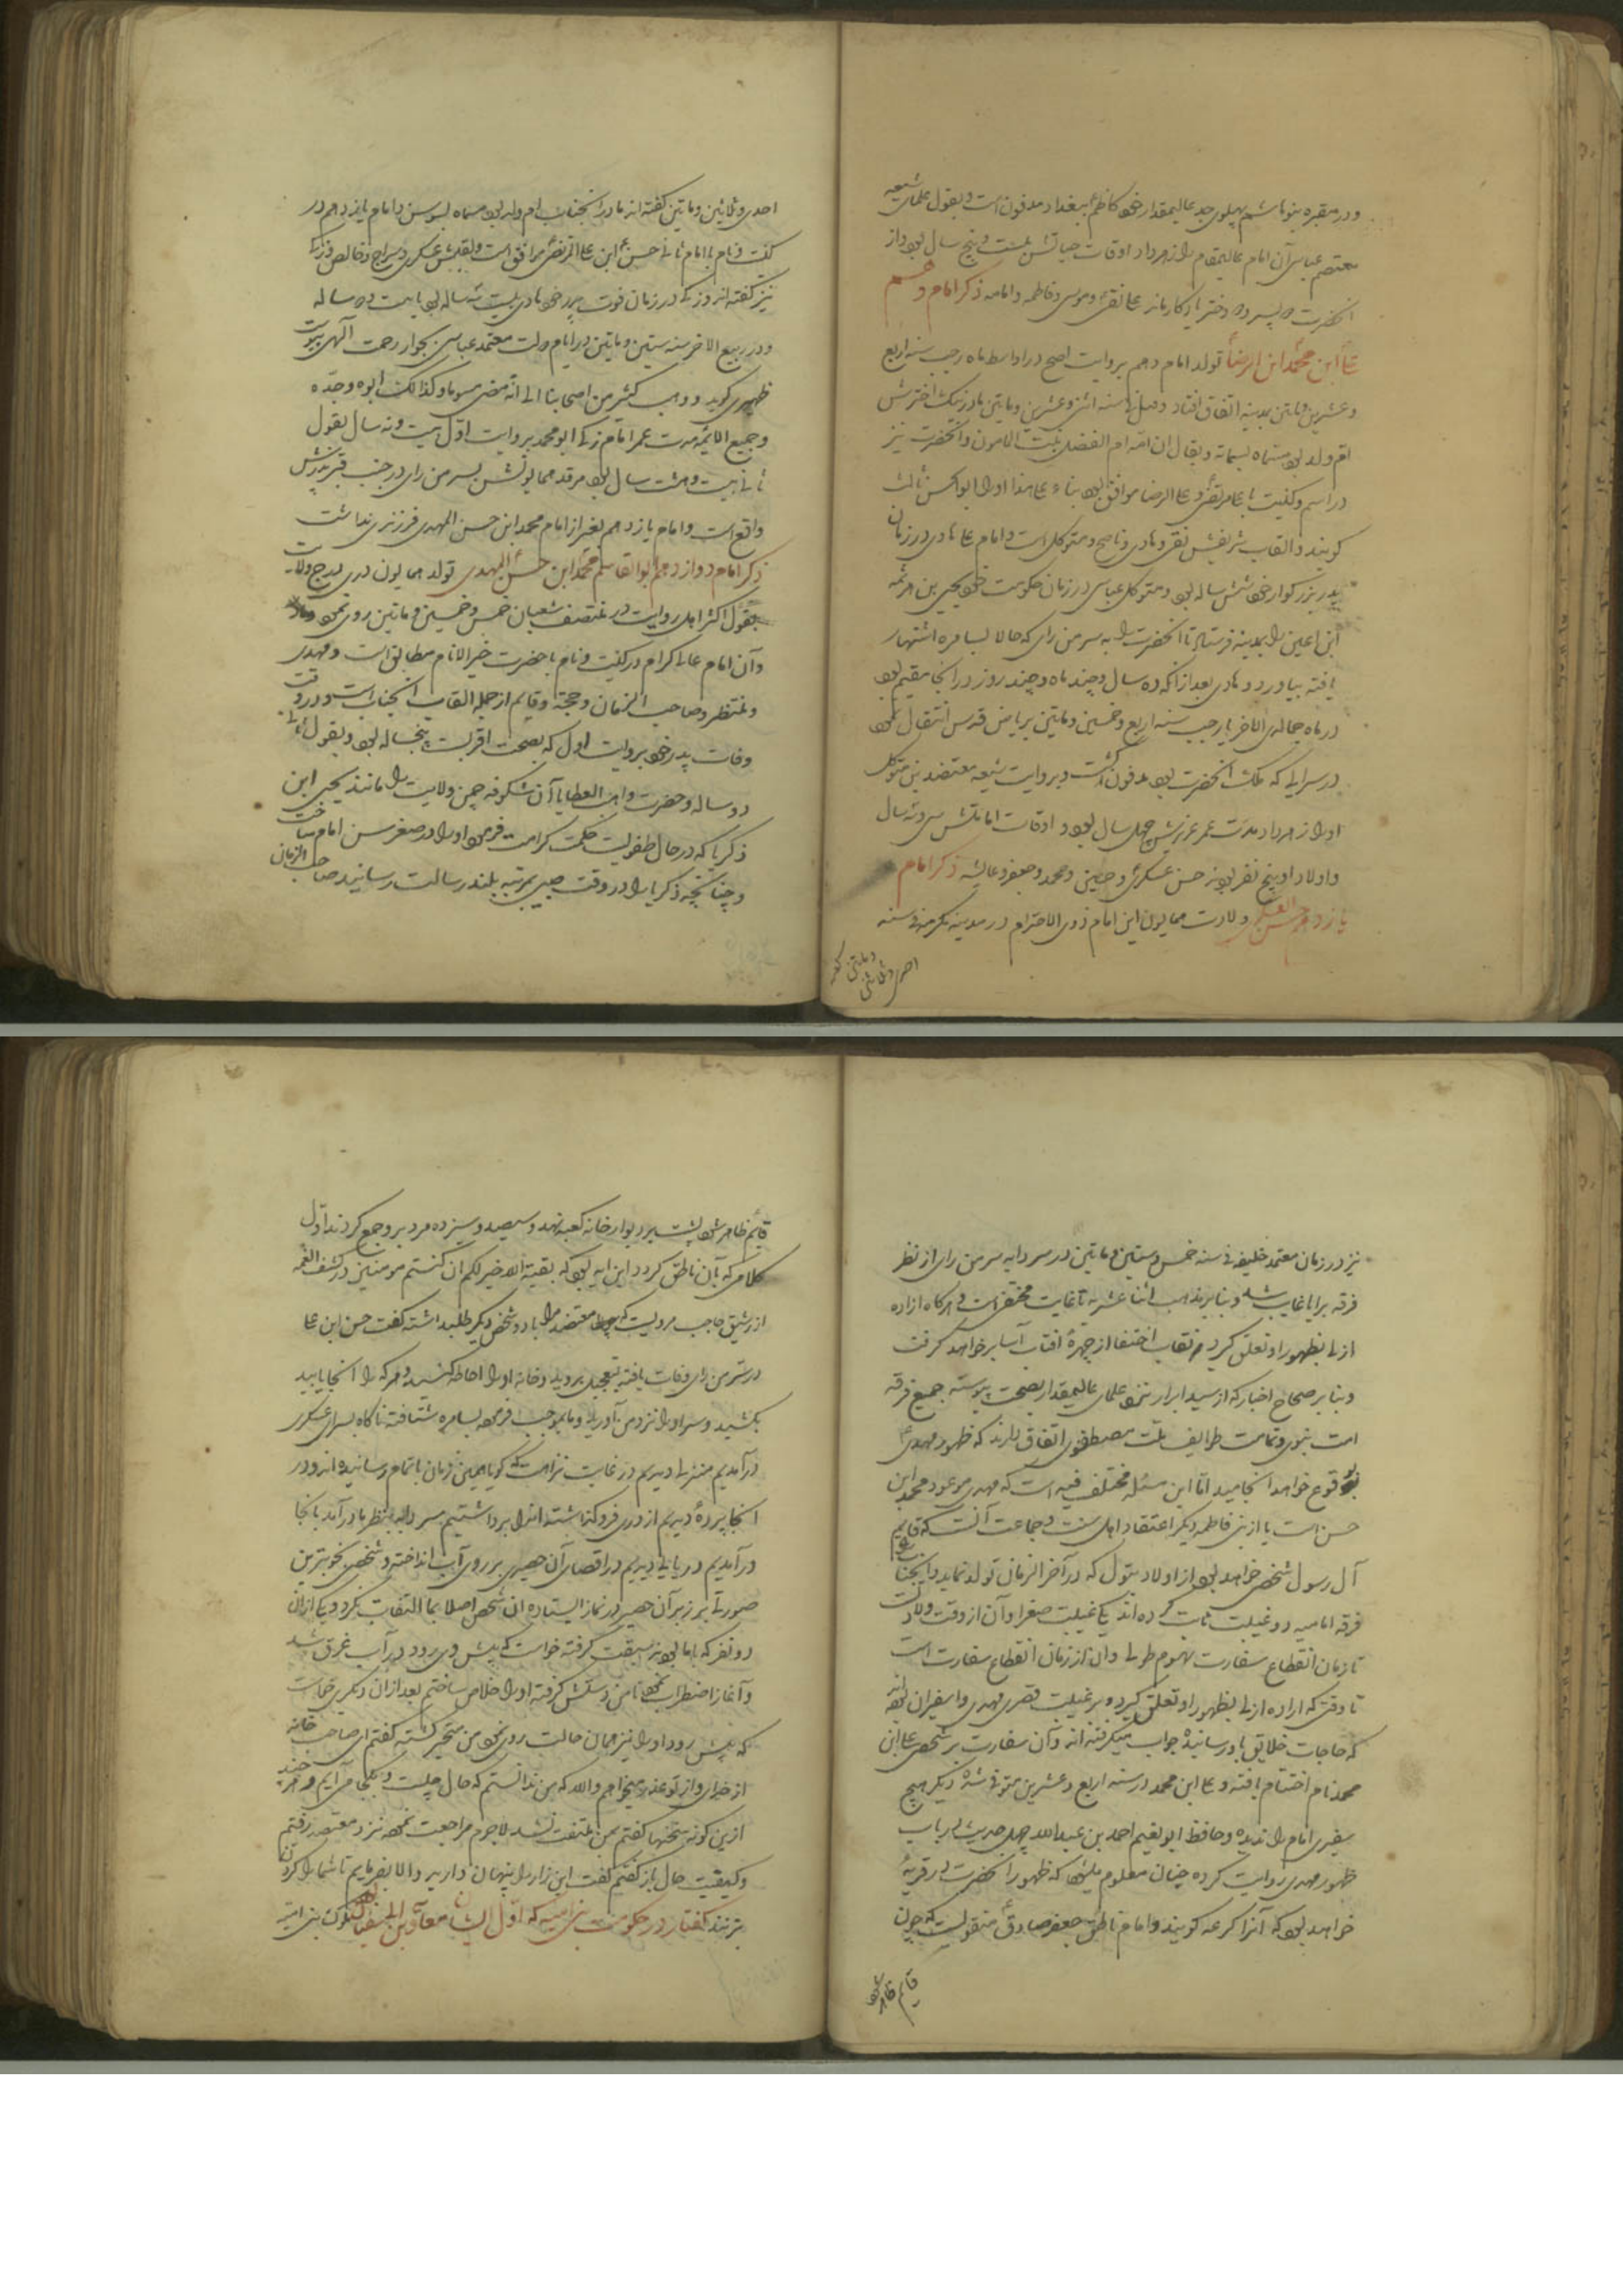 و در مقبره بنو هاشم پهلوی جد عالیمقدار خود کاظم ببغداد مدفون است و بقول علمای شیعه
معتصم عباسی آن امام عالیمقام را زهر داد اوقات حیاتش بیست و پنج سال بود از
آنحضرت دو پسر و دو دختر یادگار ماند علی نقی و موسی و فاطمه و امامه ذکر امام دهم
علی ابن محمد ابن الرضا تولد امام دهم بروایت اصح در اواسط ماه رجب سنه اربع
و عشرین و مأتین بمدینه اتفاق افتاد و قیل فی سنه اثنی و عشرین و مأتین مادر نیک اخترش
ام ولد بود مسماه بسمانه و یقال ان امه ام الفضل بنت المامون و آنحضرت نیز
در اسم و کنیت با علی مرتضی و علی الرضا موافق بود بناء علی هذا او را ابوالحسن ثالث
گویند و القاب شریفش نقی و هادی و ناصح و متوکل است و امام علی هادی در زمان
پدر بزرگوار خود شش ساله بود و متوکل عباسی در زمان حکومت خود یحیی بن هرثمه
ابن اعین را بمدینه فرستاد تا آنحضرت را به سر من رای که حالا بسامره اشتهار
یافته بیاورد و هادی بعد از آنکه ده سال و چند ماه و چند روز در آنجا مقیم بود
در ماه جمادی الاخر یا رجب سنه اربع و خمسین و مأتین بریاض قدس انتقال نمود
در سرایی که ملک آنحضرت بود مدفون گشت و بروایت شیعه معتضد بن متوکل
او را زهر داد مدت عمر عزیزش چهل سال بود و اوقات امامتش سی و سه سال
و اولاد او پنج نفر بودند حسن عسکری و حسین و محمد و جعفر و عایشه ذکر امام
یازدهم حسن العسکری ولادت همایون این امام ذوی الاحترام در مدینه مکرمه فی سنه
احدی و ثلاثین و مأتین گفته
احدی و ثلاثین و مأتین گفته اند مادر آنجناب ام ولد بود مسماه بسوسن و امام یازدهم در
کنیت و نام با امام ثانی حسن ابن علی المرتضی موافق است و لقبش عسکری و سراج و خالص و زکی
نیز گفته اند و زکی در زمان فوت پدر خود هادی بیست و سه ساله بود یا بیست و دو ساله
و در ربیع الاخر سنه ستین و مأتین در ایام دولت معتمد عباسی بجوار رحمت الهی پیوست
ظهیری گوید و ذهب کثیر من اصحابنا الی انه مضی مسموما و کذالک ابوه و جده
و جمیع الائمه مدت عمر امام زکی ابو محمد بروایت اول بیست و نه سال بقول
ثانی بیست و هشت سال بود مرقد همایونش بسر من رای در جنب قبر پدرش
واقع است و امام یازدهم بغیر از امام محمد ابن حسن المهدی فرزندی نداشت
ذکر امام دوازدهم ابوالقاسم محمد ابن حسن المهدی تولد همایون دری برج ولایت
بقول اکثر اهل روایت در منتصف شعبان خمس و خمسین و مأتین روی نمود
و آن امام عالی اکرام در کنیت و نام با حضرت خیر الانام مطابق است و مهدی
و منتظر و صاحب الزمان و حجة و قایم از جمله القاب آنجناب است و در وقت
وفات پدر خود بروایت اول که بصحت اقربست پنجساله بود و بقول ثانی
دو ساله و حضرت واهب العطایا آن شکوفه چمن ولایت را مانند یحیی ابن
ذکریا که در حال طفولیت حکمت کرامت فرمود او را در صغر سن امام ساخت
و چنانچه ذکریا را در وقت صبی بمرتبه بلند رسالت رسانید صاحب الزمان
نیز در زمان معتمد خلیفه فی سنه خمس و ستین و مأتین در سردابه سر من رای از نظر
فرقه برایا غایب شد و بنا بر مذهب اثنا عشریه تا غایت مختفی است و هرگاه اراده
ازلی بظهور او تعلق گیرد نقاب اختفا از چهره آفتاب آسا بر خواهد گرفت
و بنا بر صحاح اخبار که از سید ابرار نزد علمای عالیمقدار بصحت پیوسته جمیع فرقه
امت نبوی و تمامت طوایف ملت مصطفوی اتفاق دارند که ظهور مهدی
بوقوع خواهد انجامید اما این مسئله مختلف فیه است که مهدی موعود محمد ابن
حسن است یا از بنی فاطمه دیگر اعتقاد اهل سنت و جماعت آنست که قایم
آل رسول شخصی خواهد بود از اولاد بتول که در آخر الزمان تولد نماید و آنجناب را
فرقه امامیه دو غیبت ثابت کرده اند یکی غیبت صغرا و آن از وقت ولادت
تا زمان انقطاع سفارت دوم طولی و آن از زمان انقطاع سفارت است
تا وقتی که اراده ازلی بظهور او تعلق گیرد و در غیبت قصری مهدی را سفیران بوده اند
که حاجات خلایق باو رسانیده جواب میگرفته اند و آن سفارت بر شخصی علی ابن
محمد نام اختتام یافته و علی ابن محمد در سنه اربع و عشرین متوفی شده دیگر هیچ
سفیری امام را ندیده و حافظ ابو نعیم احمد بن عبدالله چهل حدیث در باب
ظهور مهدی روایت کرده چنان معلوم میشود که ظهور آنحضرت در قریه
خواهد بود که آنرا کرعه گویند و امام ناطق جعفر صادق منقولیست که چون
قایم ظاهر شود
قائم ظاهر شود پشت بر دیوار خانه کعبه نهد و سیصد و سیزده مرد برو جمع گردند اول
کلامی که بآن ناطق گردد این آیه بود که بقیة الله خیر لکم ان کنتم مومنین در کشف الغمه
از رشیق حاجب مرویست که معتضد مرا با دو شخص دیگر طلب داشته گفت حسن ابن علی
در سر من رای وفات یافته بتعجیل بروید و خانه او را احاطه کنید و هر که را آنجا یابید
بکشید و سر او را نزد من آورید و ما بموجب فرموده بسامره شتافته ناگاه بسرای عسکری
درآمدیم منزلی دیدیم در غایت نزاهت که گویا همین زمان باتمام رسانیده اند و در
آنجا پرده دیدیم از دری فرو گذاشته آنرا برداشتیم سردابه بنظر ما درآمد بآنجا
درآمدیم دریایی دیدیم در اقصای آن حصیری بر روی آب انداخته و شخصی بخوبترین
صورتی بر زبر آن حصیر در نماز ایستاده آن شخص اصلا بما التفات نکرد و یکی از آن
دو نفر که با ما بودند سبقت گرفته خواست که پیش وی رود در آب غرق شد
و آغاز اضطراب نمود تا من دستش گرفته او را خلاص ساختم بعد از آن دیگری خواست
که پیش رود او را نیز همان حالت روی نمود من متحیر گشته گفتم ای صاحب خانه
از خدای و از تو عذر میخواهم والله که من ندانستم که حال چیست و بکجا می آیم و هر چند
ازین گونه سخنها گفتم بمن ملتفت نشد لاجرم مراجعت نموده نزد معتضد رفتم
و کیفیت حال باز گفتم گفت این راز را پنهان دارید و الا بفرمایم تا شما را گردن
بزنند گفتار در حکومت بنی امیه که اول ایشان معاویه بن ابی سفیان بود ملوک بنی امیه